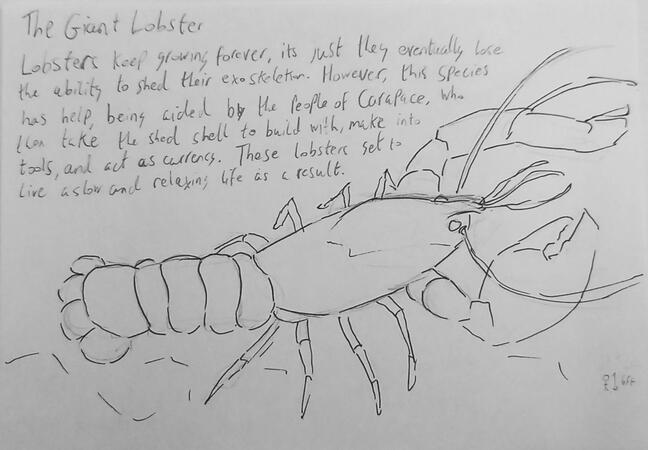 The Giant Lobster
Lobsters keep growing forever, its just they eventually lose
the ability to shed their exoskeleton. However, this species
has help, being aided by the People of Carapace, who
can take the shed shell to build with, make into
tools, and act as currency. These lobsters get to
live a slow and relaxing life as a result.